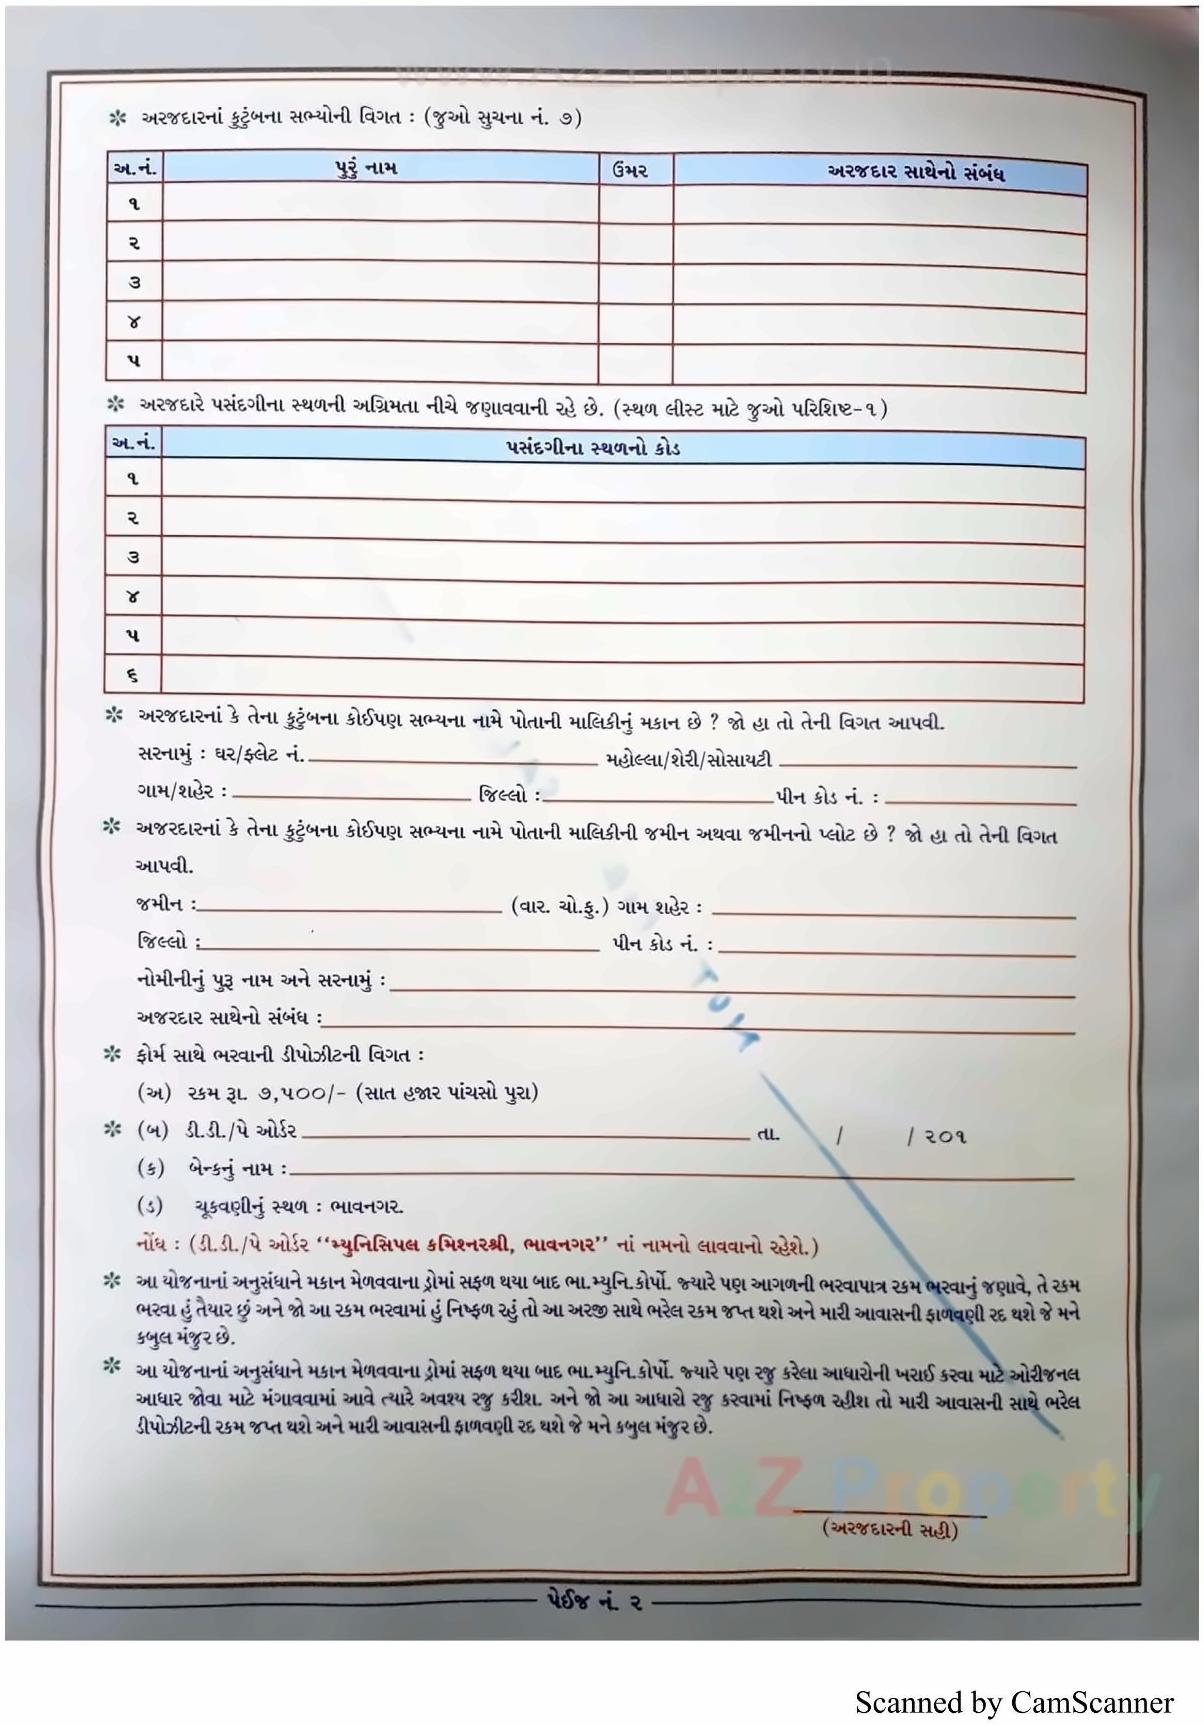 www.A2Z Property.in
❇ અરજદારનાં કુટુંબના સભ્યોની વિગત : (જુઓ સુચના નં. ૭)
અ.નં. પુરું નામ ઉંમર અરજદાર સાથેનો સંબંધ
૧
૨
૩
૪
૫
❇ અરજદારે પસંદગીના સ્થળની અગ્રિમતા નીચે જણાવવાની રહે છે. (સ્થળ લીસ્ટ માટે જુઓ પરિશિષ્ટ-૧)
અ.નં. પસંદગીના સ્થળનો કોડ
૧
૨
૩
૪
૫
૬
❇ અરજદારનાં કે તેના કુટુંબના કોઈપણ સભ્યના નામે પોતાની માલિકીનું મકાન છે ? જો હા તો તેની વિગત આપવી.
સરનામું : ઘર/ફ્લેટ નં. મહોલ્લા/શેરી/સોસાયટી
ગામ/શહેર : જિલ્લો : પીન કોડ નં. :
❇ અજરદારનાં કે તેના કુટુંબના કોઈપણ સભ્યના નામે પોતાની માલિકીની જમીન અથવા જમીનનો પ્લોટ છે ? જો હા તો તેની વિગત
આપવી.
જમીન : (વાર. ચો.ફુ.) ગામ શહેર :
જિલ્લો : પીન કોડ નં. :
નોમીનીનું પુરૂ નામ અને સરનામું :
અજરદાર સાથેનો સંબંધ :
❇ ફોર્મ સાથે ભરવાની ડીપોઝીટની વિગત :
(અ) રકમ રૂા. ૭,૫૦૦/- (સાત હજાર પાંચસો પુરા)
❇ (બ) ડી.ડી./પે ઓર્ડર તા. / / ૨૦૧
(ક) બેન્કનું નામ :
(ડ) ચૂકવણીનું સ્થળ : ભાવનગર.
નોંધ : (ડી.ડી./પે ઓર્ડર “મ્યુનિસિપલ કમિશ્નરશ્રી, ભાવનગર” નાં નામનો લાવવાનો રહેશે.)
❇ આ યોજનાનાં અનુસંધાને મકાન મેળવવાના ડ્રોમાં સફળ થયા બાદ ભા.મ્યુનિ.કોર્પો. જ્યારે પણ આગળની ભરવાપાત્ર રકમ ભરવાનું જણાવે, તે રકમ
ભરવા હું તૈયાર છું અને જો આ રકમ ભરવામાં હું નિષ્ફળ રહું તો આ અરજી સાથે ભરેલ રકમ જપ્ત થશે અને મારી આવાસની ફાળવણી રદ થશે જે મને
કબુલ મંજુર છે.
❇ આ યોજનાનાં અનુસંધાને મકાન મેળવવાના ડ્રોમાં સફળ થયા બાદ ભા.મ્યુનિ.કોર્પો. જ્યારે પણ રજુ કરેલા આધારોની ખરાઈ કરવા માટે ઓરીજનલ
આધાર જોવા માટે મંગાવવામાં આવે ત્યારે અવશ્ય રજુ કરીશ. અને જો આ આધારો રજુ કરવામાં નિષ્ફળ રહીશ તો મારી આવાસની સાથે ભરેલ
ડીપોઝીટની રકમ જપ્ત થશે અને મારી આવાસની ફાળવણી રદ થશે જે મને કબુલ મંજુર છે.
A2Z Property
(અરજદારની સહી)
પેઈજ નં. ૨
Scanned by CamScanner